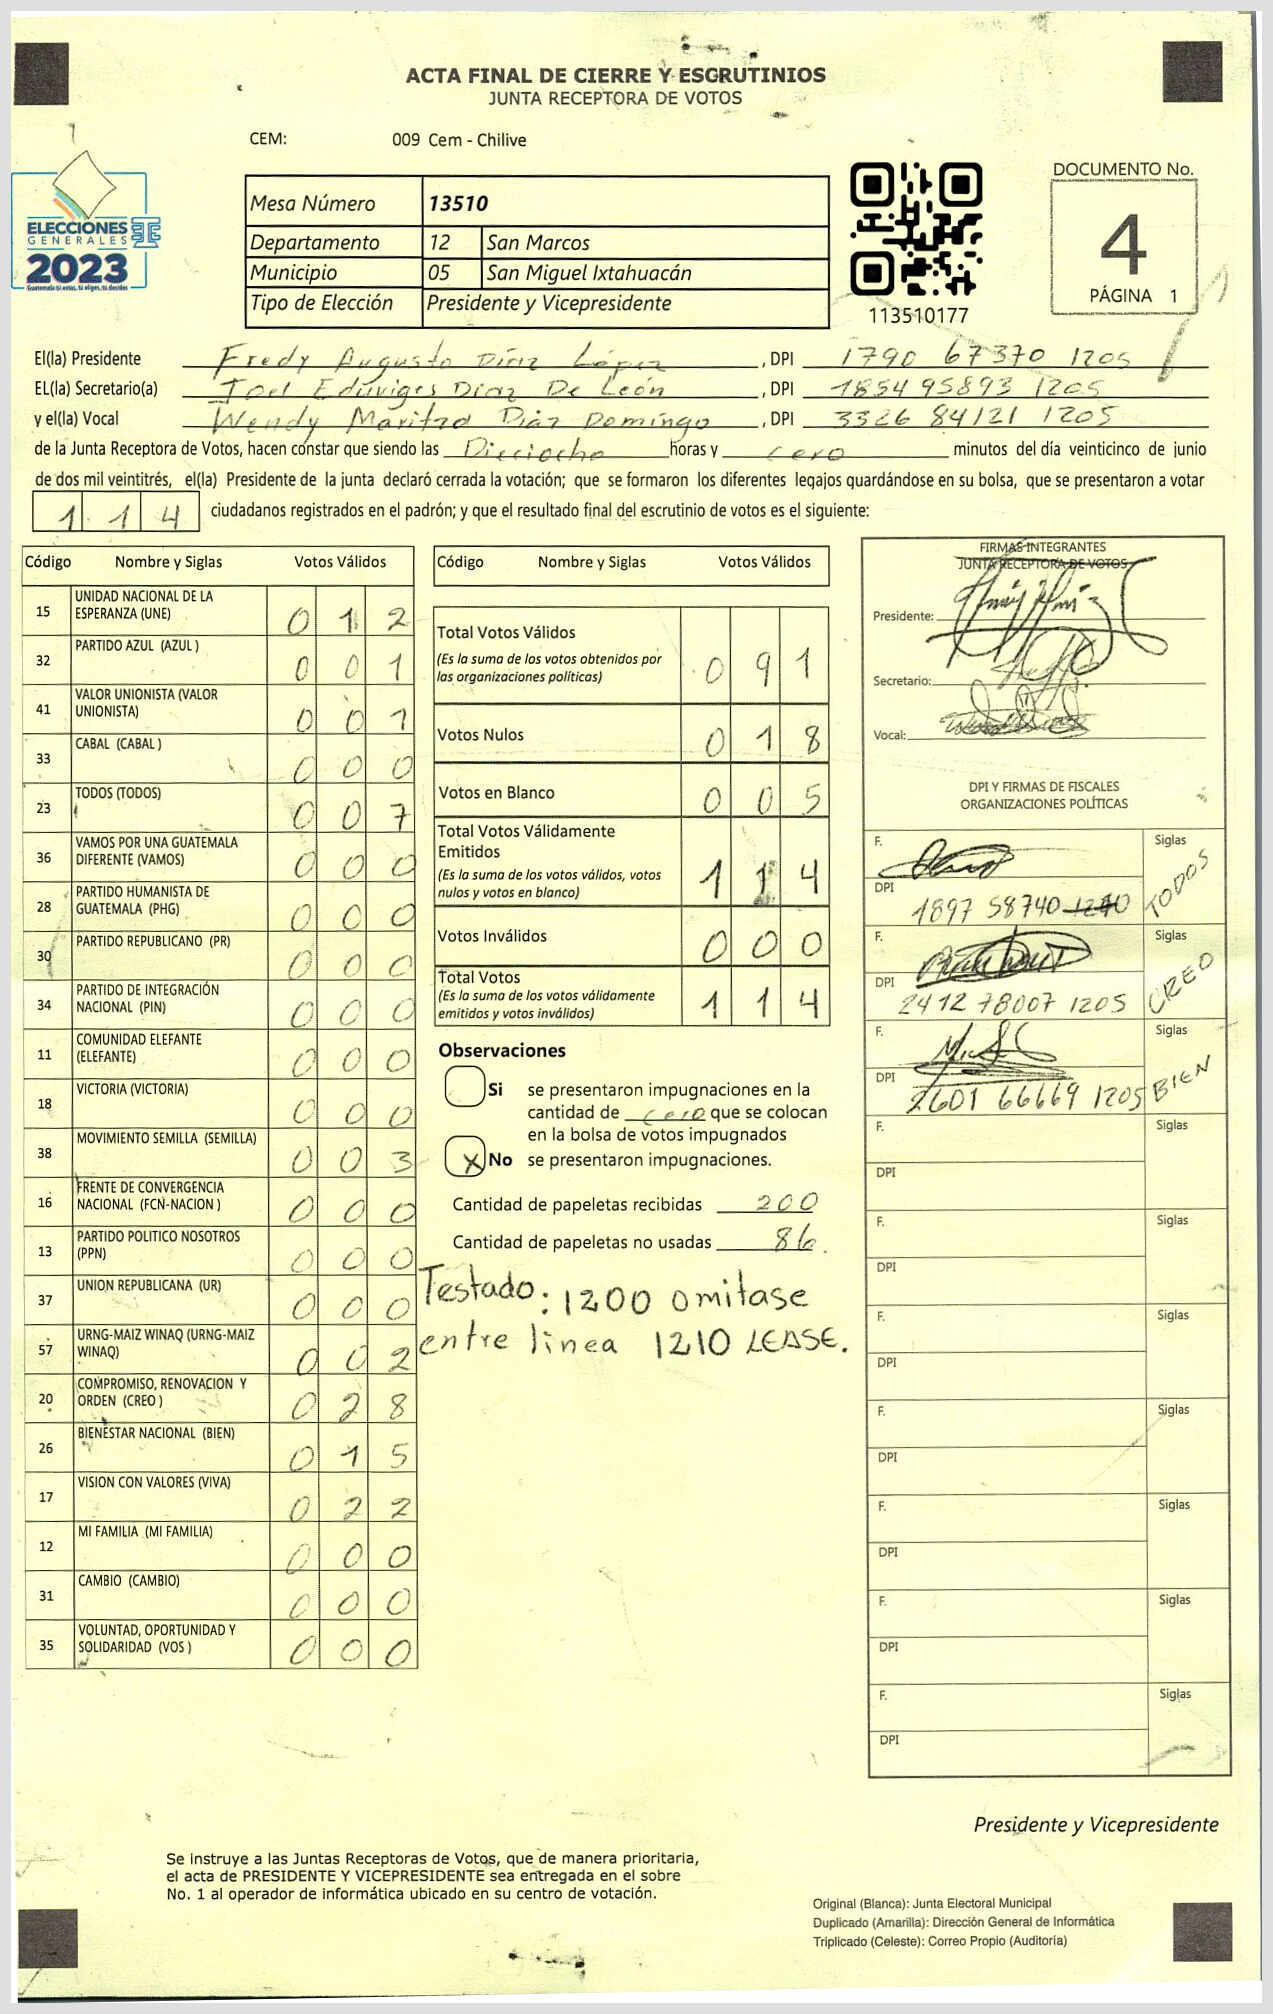 ACTA FINAL DE CIERRE Y ESCRUTINIOS
JUNTA RECEPTORA DE VOTOS
CEM: 009 Cem - Chilive
ELECCIONES
GENERALES
2023
Guatemala tú votas, tú eliges, tú decides
Mesa Número 13510
Departamento 12 San Marcos
Municipio 05 San Miguel Ixtahuacán
Tipo de Elección Presidente y Vicepresidente
113510177
DOCUMENTO No.
4
PÁGINA 1
El(la) Presidente Fredy Augusto Díaz López, DPI 1790 67370 1205
EL(la) Secretario(a) Joel Eduviges Diaz De León, DPI 1854 95893 1205
y el(la) Vocal Wendy Maritza Diaz Domingo, DPI 3326 84121 1205
de la Junta Receptora de Votos, hacen constar que siendo las Dieciocho horas y cero minutos del día veinticinco de junio
de dos mil veintitrés, el(la) Presidente de la junta declaró cerrada la votación; que se formaron los diferentes legajos quardándose en su bolsa, que se presentaron a votar
114 ciudadanos registrados en el padrón; y que el resultado final del escrutinio de votos es el siguiente:
Código Nombre y Siglas Votos Válidos
15 UNIDAD NACIONAL DE LA ESPERANZA (UNE) 012
32 PARTIDO AZUL (AZUL ) 001
41 VALOR UNIONISTA (VALOR UNIONISTA) 001
33 CABAL (CABAL ) 000
23 TODOS (TODOS) 007
36 VAMOS POR UNA GUATEMALA DIFERENTE (VAMOS) 000
28 PARTIDO HUMANISTA DE GUATEMALA (PHG) 000
30 PARTIDO REPUBLICANO (PR) 000
34 PARTIDO DE INTEGRACIÓN NACIONAL (PIN) 000
11 COMUNIDAD ELEFANTE (ELEFANTE) 000
18 VICTORIA (VICTORIA) 000
38 MOVIMIENTO SEMILLA (SEMILLA) 003
16 FRENTE DE CONVERGENCIA NACIONAL (FCN-NACION ) 000
13 PARTIDO POLITICO NOSOTROS (PPN) 000
37 UNION REPUBLICANA (UR) 000
57 URNG-MAIZ WINAQ (URNG-MAIZ WINAQ) 002
20 COMPROMISO, RENOVACION Y ORDEN (CREO ) 028
26 BIENESTAR NACIONAL (BIEN) 015
17 VISION CON VALORES (VIVA) 022
12 MI FAMILIA (MI FAMILIA) 000
31 CAMBIO (CAMBIO) 000
35 VOLUNTAD, OPORTUNIDAD Y SOLIDARIDAD (VOS ) 000
Código Nombre y Siglas Votos Válidos
Total Votos Válidos 091
(Es la suma de los votos obtenidos por
las organizaciones políticas)
Votos Nulos 018
Votos en Blanco 005
Total Votos Válidamente
Emitidos 114
(Es la suma de los votos válidos, votos
nulos y votos en blanco)
Votos Inválidos 000
Total Votos 114
(Es la suma de los votos válidamente
emitidos y votos inválidos)
Observaciones
Si se presentaron impugnaciones en la
cantidad de cero que se colocan
en la bolsa de votos impugnados
X No se presentaron impugnaciones.
Cantidad de papeletas recibidas 200
Cantidad de papeletas no usadas 86.
Testado: 1200 omitase
entre linea 1210 LEASE.
FIRMAS INTEGRANTES
JUNTA RECEPTORA DE VOTOS
Presidente:
Secretario:
Vocal:
DPI Y FIRMAS DE FISCALES
ORGANIZACIONES POLÍTICAS
F. Siglas
DPI 1897 58740 TODOS
F. Siglas
DPI 2412 78007 1205 CREO
F. Siglas
DPI 2601 66669 1205 BIEN
F. Siglas
DPI
F. Siglas
DPI
F. Siglas
DPI
F. Siglas
DPI
F. Siglas
DPI
F. Siglas
DPI
F. Siglas
DPI
Presidente y Vicepresidente
Se instruye a las Juntas Receptoras de Votos, que de manera prioritaria,
el acta de PRESIDENTE Y VICEPRESIDENTE sea entregada en el sobre
No. 1 al operador de informática ubicado en su centro de votación.
Original (Blanca): Junta Electoral Municipal
Duplicado (Amarilla): Dirección General de Informática
Triplicado (Celeste): Correo Propio (Auditoría)